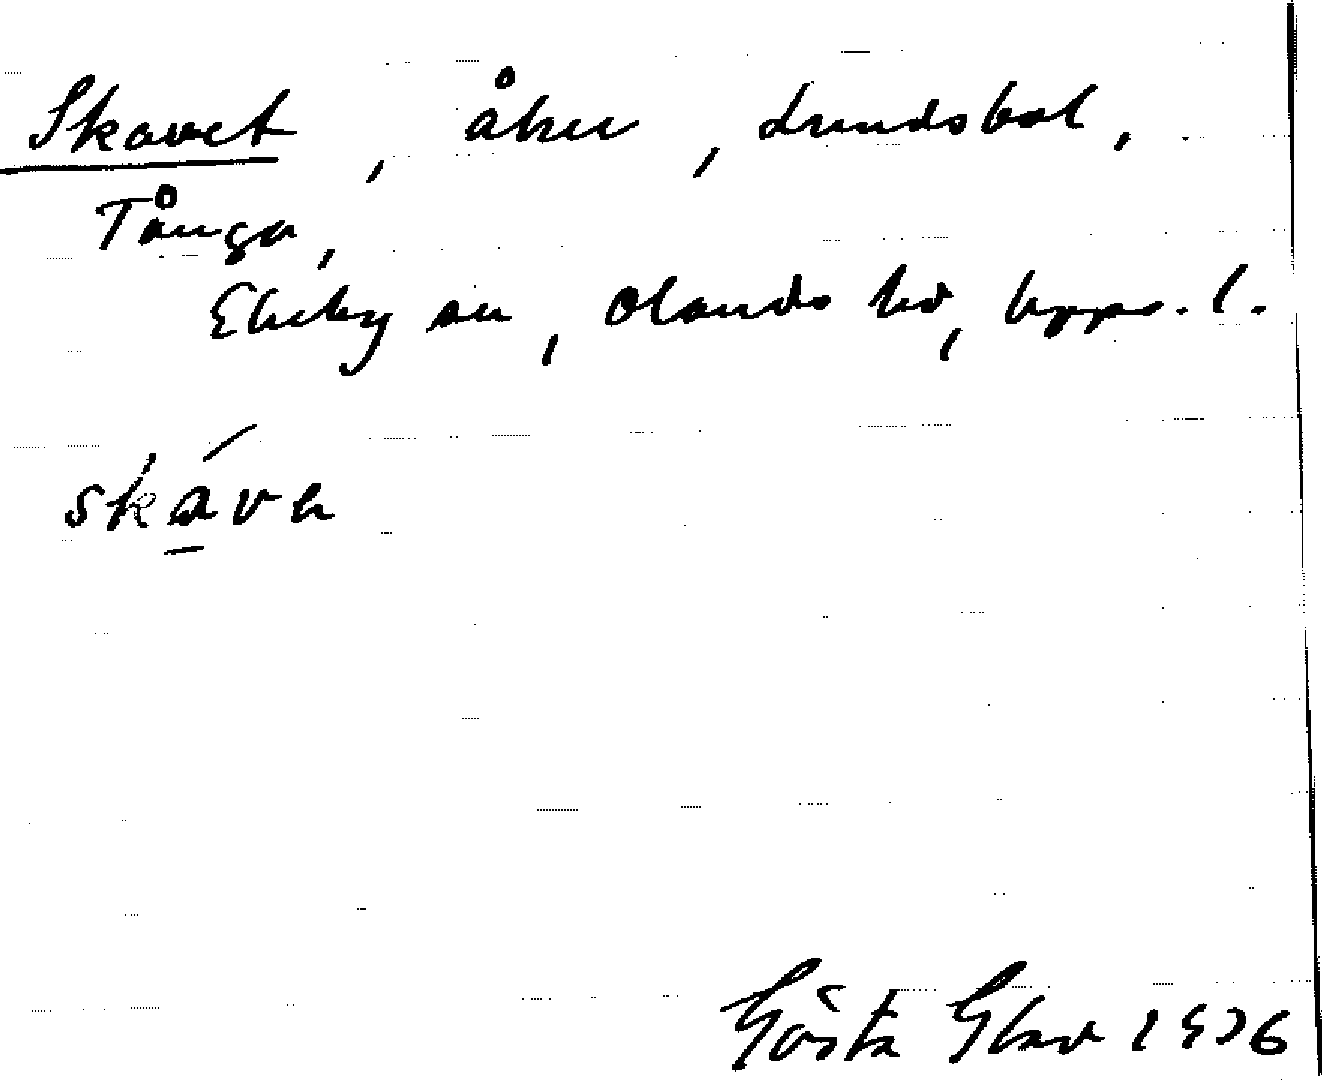 Skavet, åker, Lundsbol,
Tånga,
Ekeby sn, Olands hd, Upps. l.
skáve
Gösta